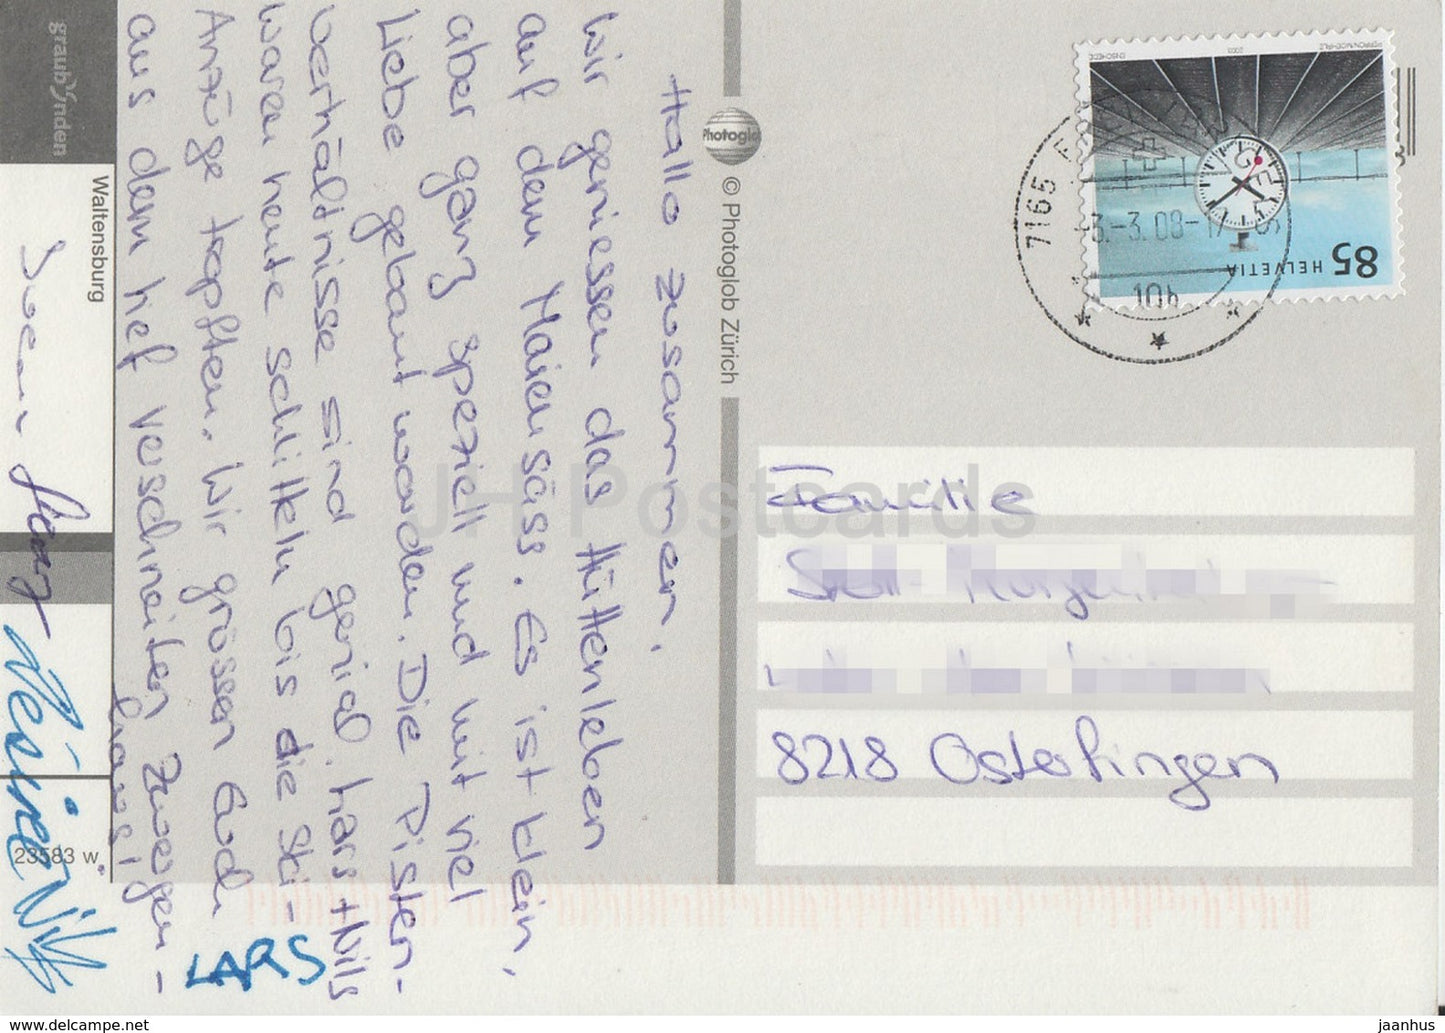 Hallo zusammen.
Wir geniessen das Hüttenleben
auf dem Maiensäss. Es ist klein,
aber ganz speziell und mit viel
Liebe gebaut worden. Die Pisten-
verhältnisse sind genial. Lars + Nils
waren heute schlitteln bis die Ski-
Anzüge tropften. Wir grüssen Euch
aus dem tief verschneiten Zwergen-
haus!
LARS
Nils
graubünden
Waltensburg
23583 w
Photoglob
© Photoglob Zürich
7165
-3.08-17
HELVETIA 85
2003
ENSCHEDÉ
Familie
8218 Osterfingen
JH Postcards
www.delcampe.net
jaanhus